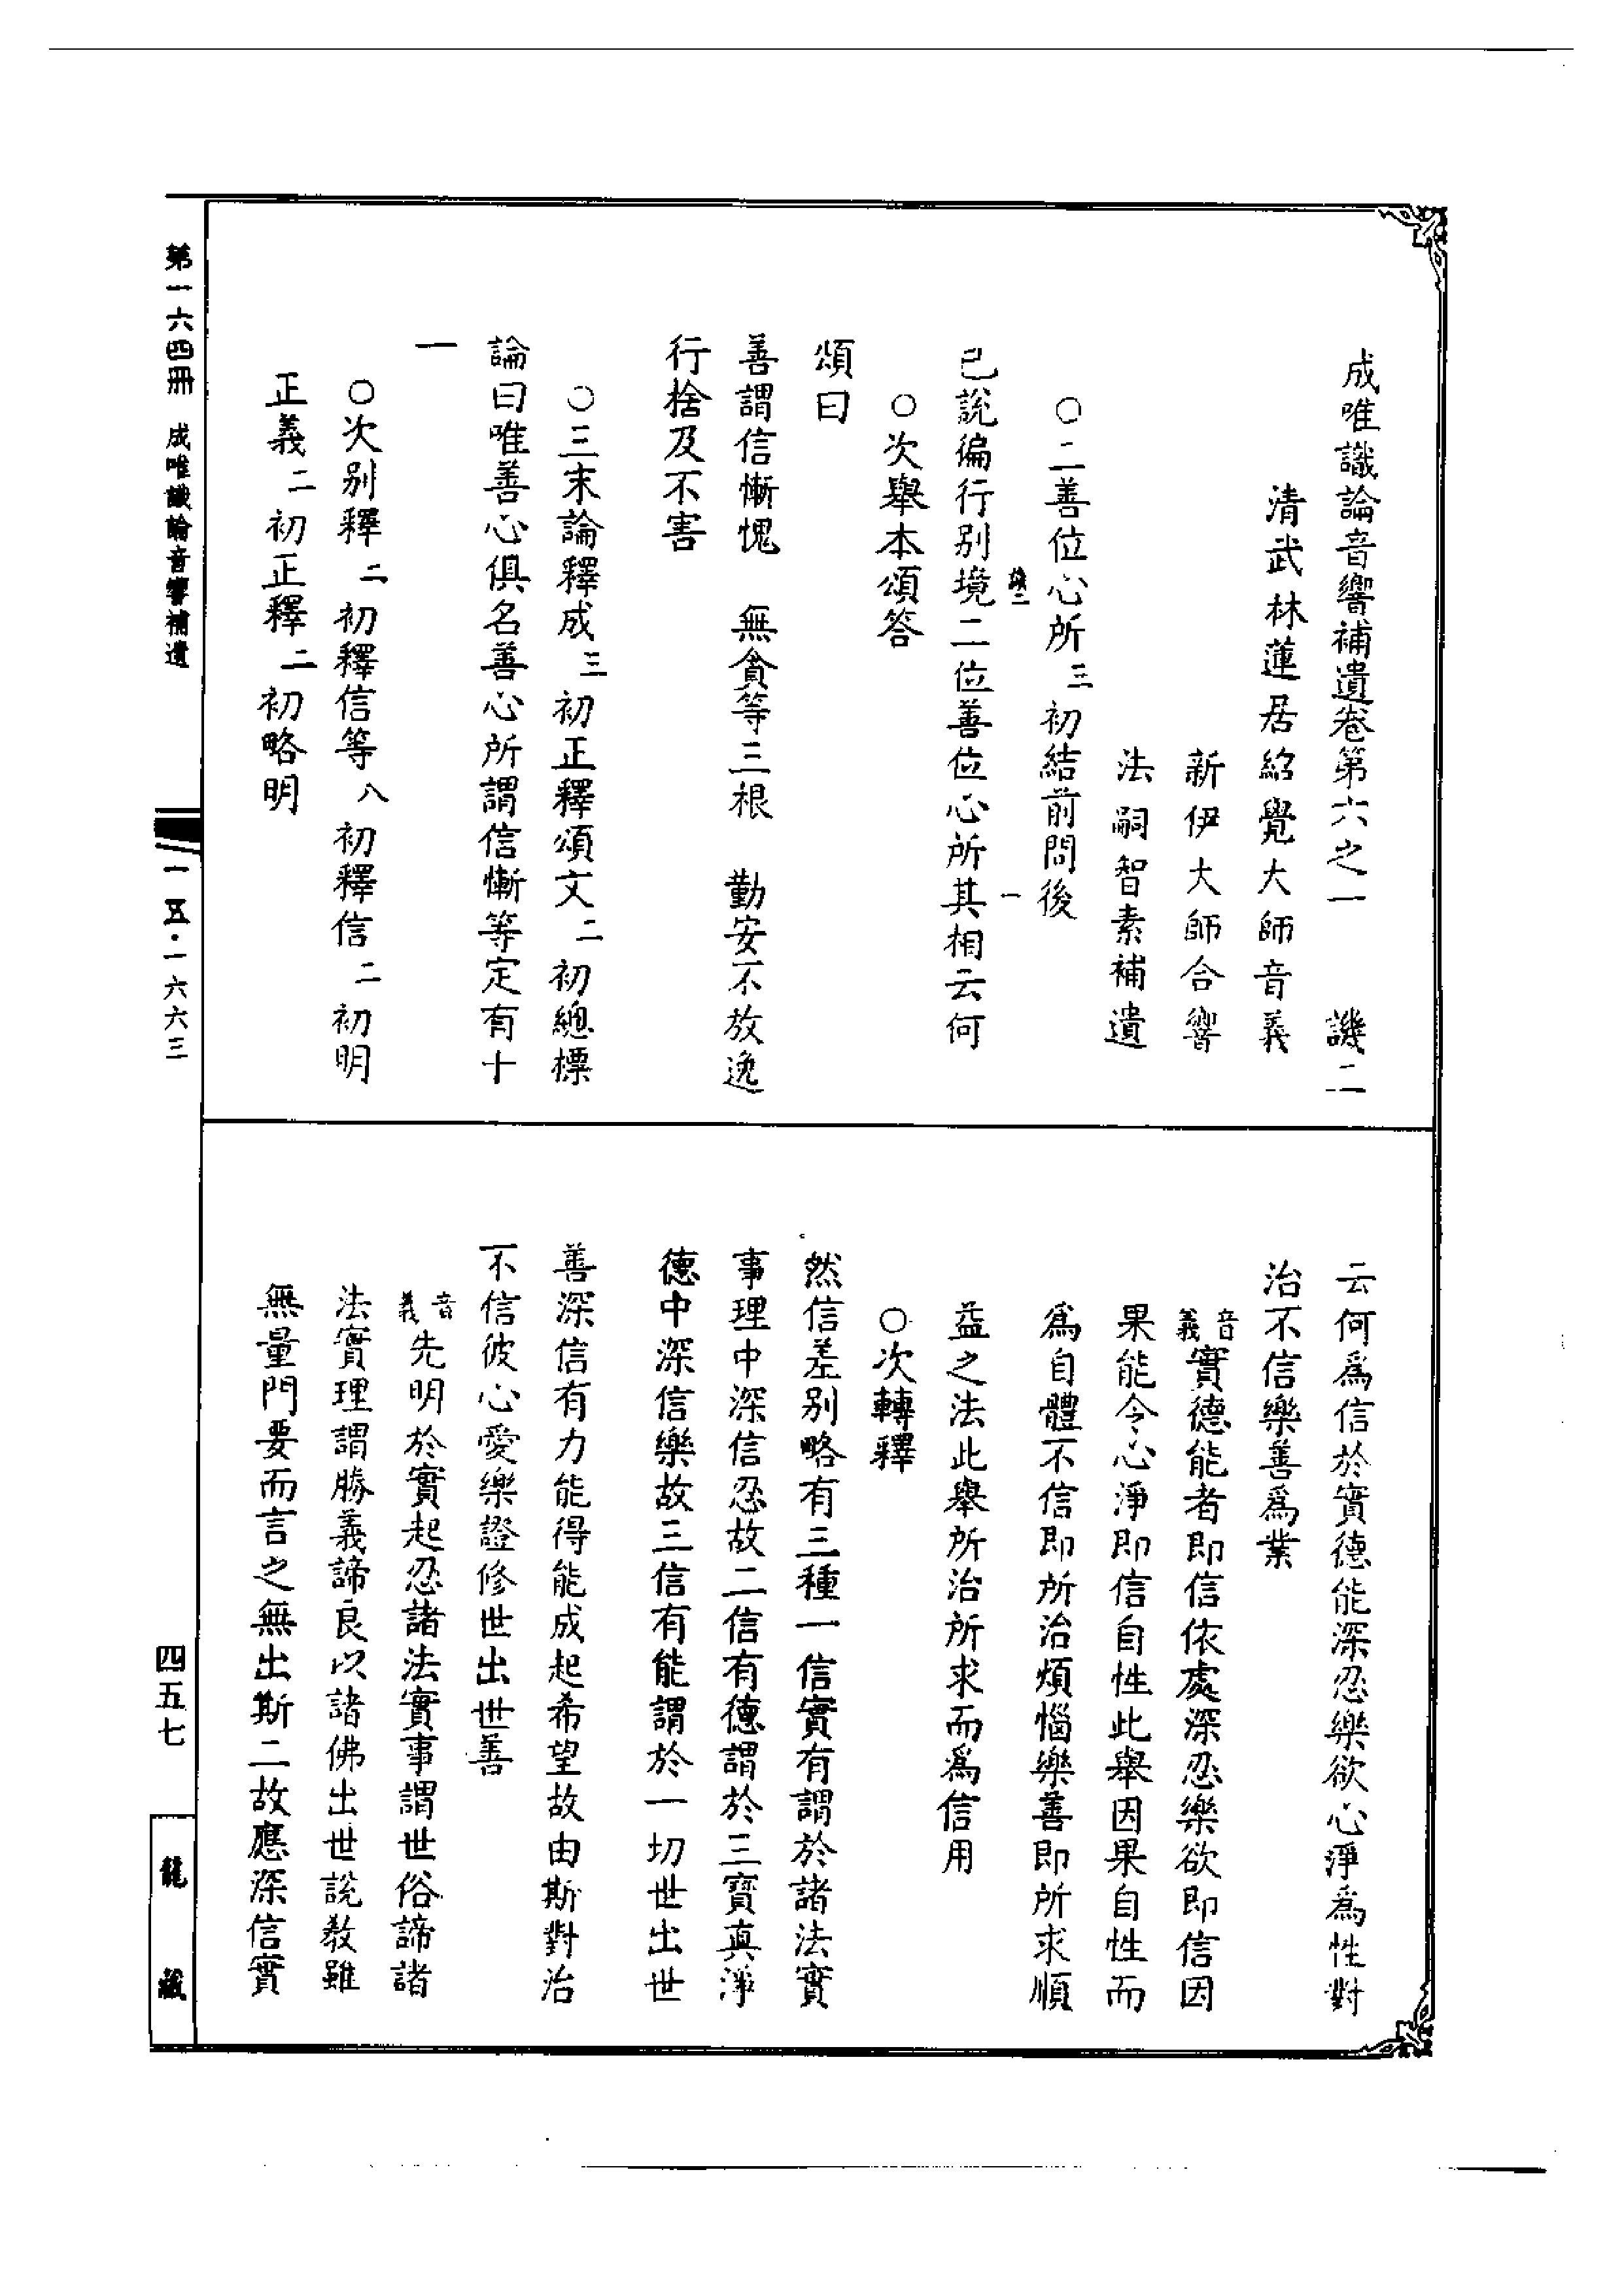 成唯識論音響補遺卷第六之一　譏二
清武林蓮居紹覺大師音義
新伊大師合響
法嗣智素補遺
○二善位心所三初結前問後
已說徧行別境二位善位心所其相云何
○次舉本頌答
頌曰
善謂信慚愧　無貪等三根　勤安不放逸
行捨及不害
○三末論釋成三初正釋頌文二初總標
論曰唯善心俱名善心所謂信慚等定有十
一
○次別釋二初釋信等八初釋信二初明
正義二初正釋二初略明
云何為信於實德能深忍樂欲心淨為性對
治不信樂善為業
音義實德能者即信依處深忍樂欲即信因
果能令心淨即信自性此舉因果自性而
為自體不信即所治煩惱樂善即所求順
益之法此舉所治所求而為信用
○次轉釋
然信差別略有三種一信實有謂於諸法實
事理中深信忍故二信有德謂於三寶真淨
德中深信樂故三信有能謂於一切世出世
善深信有力能得能成起希望故由斯對治
不信彼心愛樂證修世出世善
音義先明於實起忍諸法實事謂世俗諦諸
法實理謂勝義諦良以諸佛出世說教雖
無量門要而言之無出斯二故應深信實
第一六四冊　成唯識論音響補遺
一五·一六六三
四五七
龍藏